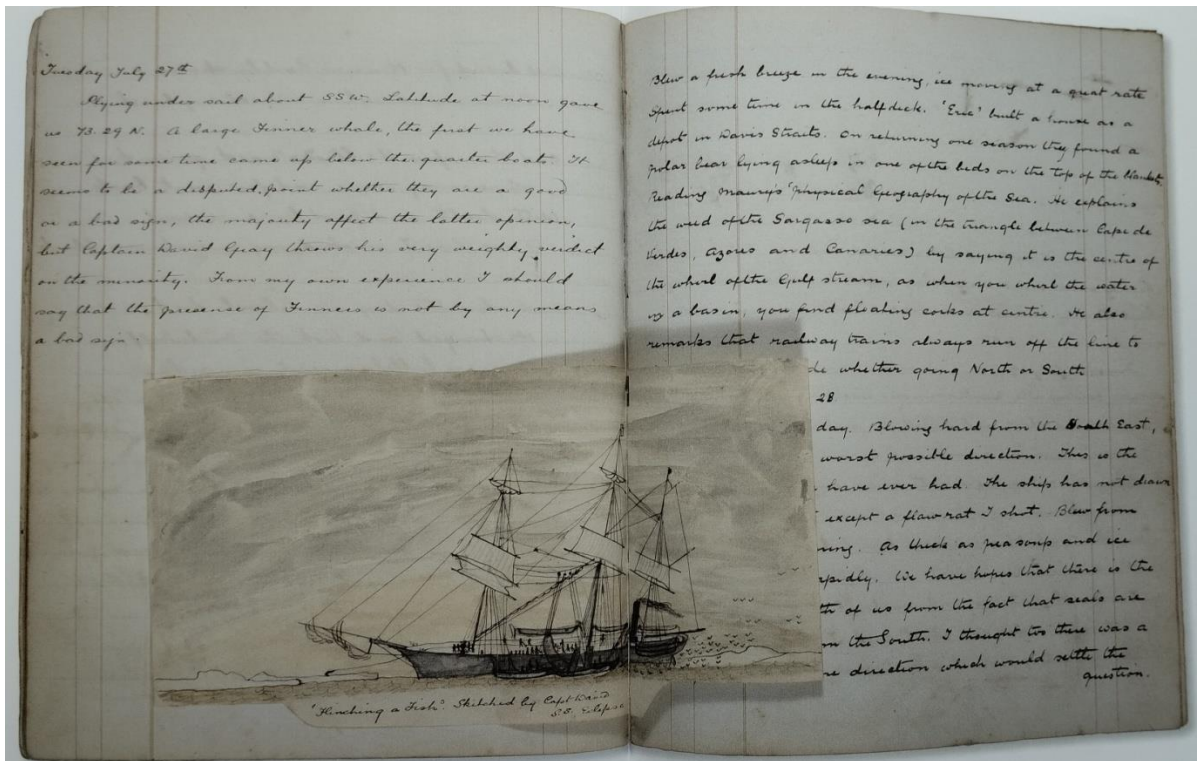 Tuesday July 27th
Plying under sail about SSW. Latitude at noon gave
us 73.29 N. A large Finner whale, the first we have
seen for some time came up below the quarter boats. It
seems to be a disputed point whether they are a good
or a bad sign, the majority affect the latter openion,
but Captain David Gray throws his very weighty verdict
on the minority. From my own experience I should
say that the presense of Finners is not by any means
a bad sign.
'Flinching a Fish'. Sketched by Capt David
SS. Eclipse
Blew a fresh breeze in the evening, ice moving at a great rate
Spent some time in the halfdeck. 'Eric' built a house as a
depot in Davis Straits. On returning one season they found a
polar bear lying asleep in one of the beds on the top of the blankets
Reading Maury's 'Physical Geography of the Sea. He explains
the weed of the Sargasso sea (in the triangle between Cape de
Verdes, Azores and Canaries) by saying it is the centre of
the whirl of the Gulf stream, as when you whirl the water
in a basin, you find floating corks at centre. He also
remarks that railway trains always run off the line to
de whether going North or South
28
day. Blowing hard from the South East,
worst possible direction. This is the
have ever had. The ship has not drawn
except a flaw rat I shot. Blew from
ning. As thick as peasoup and ice
apidly. We have hopes that there is the
th of us from the fact that seals are
m the South. I thought too there was a
re direction which would settle the
question.